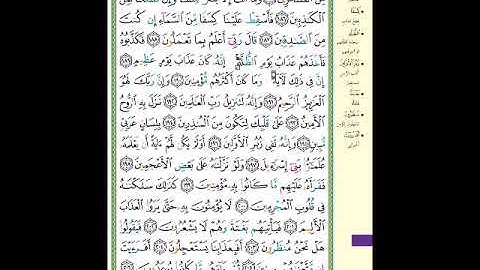 ٱلْكَٰذِبِينَ ١٨٦ فَأَسْقِطْ عَلَيْنَا كِسَفًا مِّنَ ٱلسَّمَآءِ إِن كُنتَ
مِنَ ٱلصَّٰدِقِينَ ١٨٧ قَالَ رَبِّىٓ أَعْلَمُ بِمَا تَعْمَلُونَ ١٨٨ فَكَذَّبُوهُ
فَأَخَذَهُمْ عَذَابُ يَوْمِ ٱلظُّلَّةِ إِنَّهُۥ كَانَ عَذَابَ يَوْمٍ عَظِيمٍ ١٨٩
إِنَّ فِى ذَٰلِكَ لَءَايَةً وَمَا كَانَ أَكْثَرُهُم مُّؤْمِنِينَ ١٩٠ وَإِنَّ رَبَّكَ لَهُوَ
ٱلْعَزِيزُ ٱلرَّحِيمُ ١٩١ وَإِنَّهُۥ لَتَنزِيلُ رَبِّ ٱلْعَٰلَمِينَ ١٩٢ نَزَلَ بِهِ ٱلرُّوحُ
ٱلْأَمِينُ ١٩٣ عَلَىٰ قَلْبِكَ لِتَكُونَ مِنَ ٱلْمُنذِرِينَ ١٩٤ بِلِسَانٍ عَرَبِىٍّ
مُّبِينٍ ١٩٥ وَإِنَّهُۥ لَفِى زُبُرِ ٱلْأَوَّلِينَ ١٩٦ أَوَلَمْ يَكُن لَّهُمْ ءَايَةً أَن يَعْلَمَهُۥ
عُلَمَٰٓؤُا۟ بَنِىٓ إِسْرَٰٓءِيلَ ١٩٧ وَلَوْ نَزَّلْنَٰهُ عَلَىٰ بَعْضِ ٱلْأَعْجَمِينَ ١٩٨
فَقَرَأَهُۥ عَلَيْهِم مَّا كَانُوا۟ بِهِۦ مُؤْمِنِينَ ١٩٩ كَذَٰلِكَ سَلَكْنَٰهُ
فِى قُلُوبِ ٱلْمُجْرِمِينَ ٢٠٠ لَا يُؤْمِنُونَ بِهِۦ حَتَّىٰ يَرَوُا۟ ٱلْعَذَابَ
ٱلْأَلِيمَ ٢٠١ فَيَأْتِيَهُم بَغْتَةً وَهُمْ لَا يَشْعُرُونَ ٢٠٢ فَيَقُولُوا۟
هَلْ نَحْنُ مُنظَرُونَ ٢٠٣ أَفَبِعَذَابِنَا يَسْتَعْجِلُونَ ٢٠٤ أَفَرَءَيْتَ